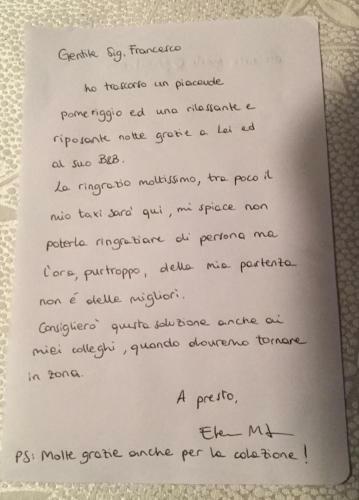 Gentile Sig. Francesco
ho trascorso un piacevole
pomeriggio ed una rilassante e
riposante notte grazie a Lei ed
al suo B&B.
La ringrazio moltissimo, tra poco il
mio taxi sarà qui, mi spiace non
poterla ringraziare di persona ma
l'ora, purtroppo, della mia partenza
non é delle migliori.
Consiglierò questa soluzione anche ai
miei colleghi, quando dovremo tornare
in zona.
A presto,
PS: Molte grazie anche per la colazione!